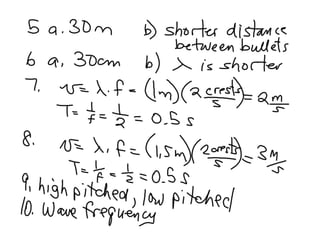 5 a. 30m b) shorter distance
between bullets
6 a, 30cm b) λ is shorter
7. v = λ·f = (1m)(2 crests/s) = 2 m/s
T = 1/f = 1/2 = 0.5 s
8. v = λ, f = (1,5m)(2 crests/s) = 3 M/s
T = 1/f = 1/2 = 0.5 s
9, high pitched, low pitched
10. Wave frequency